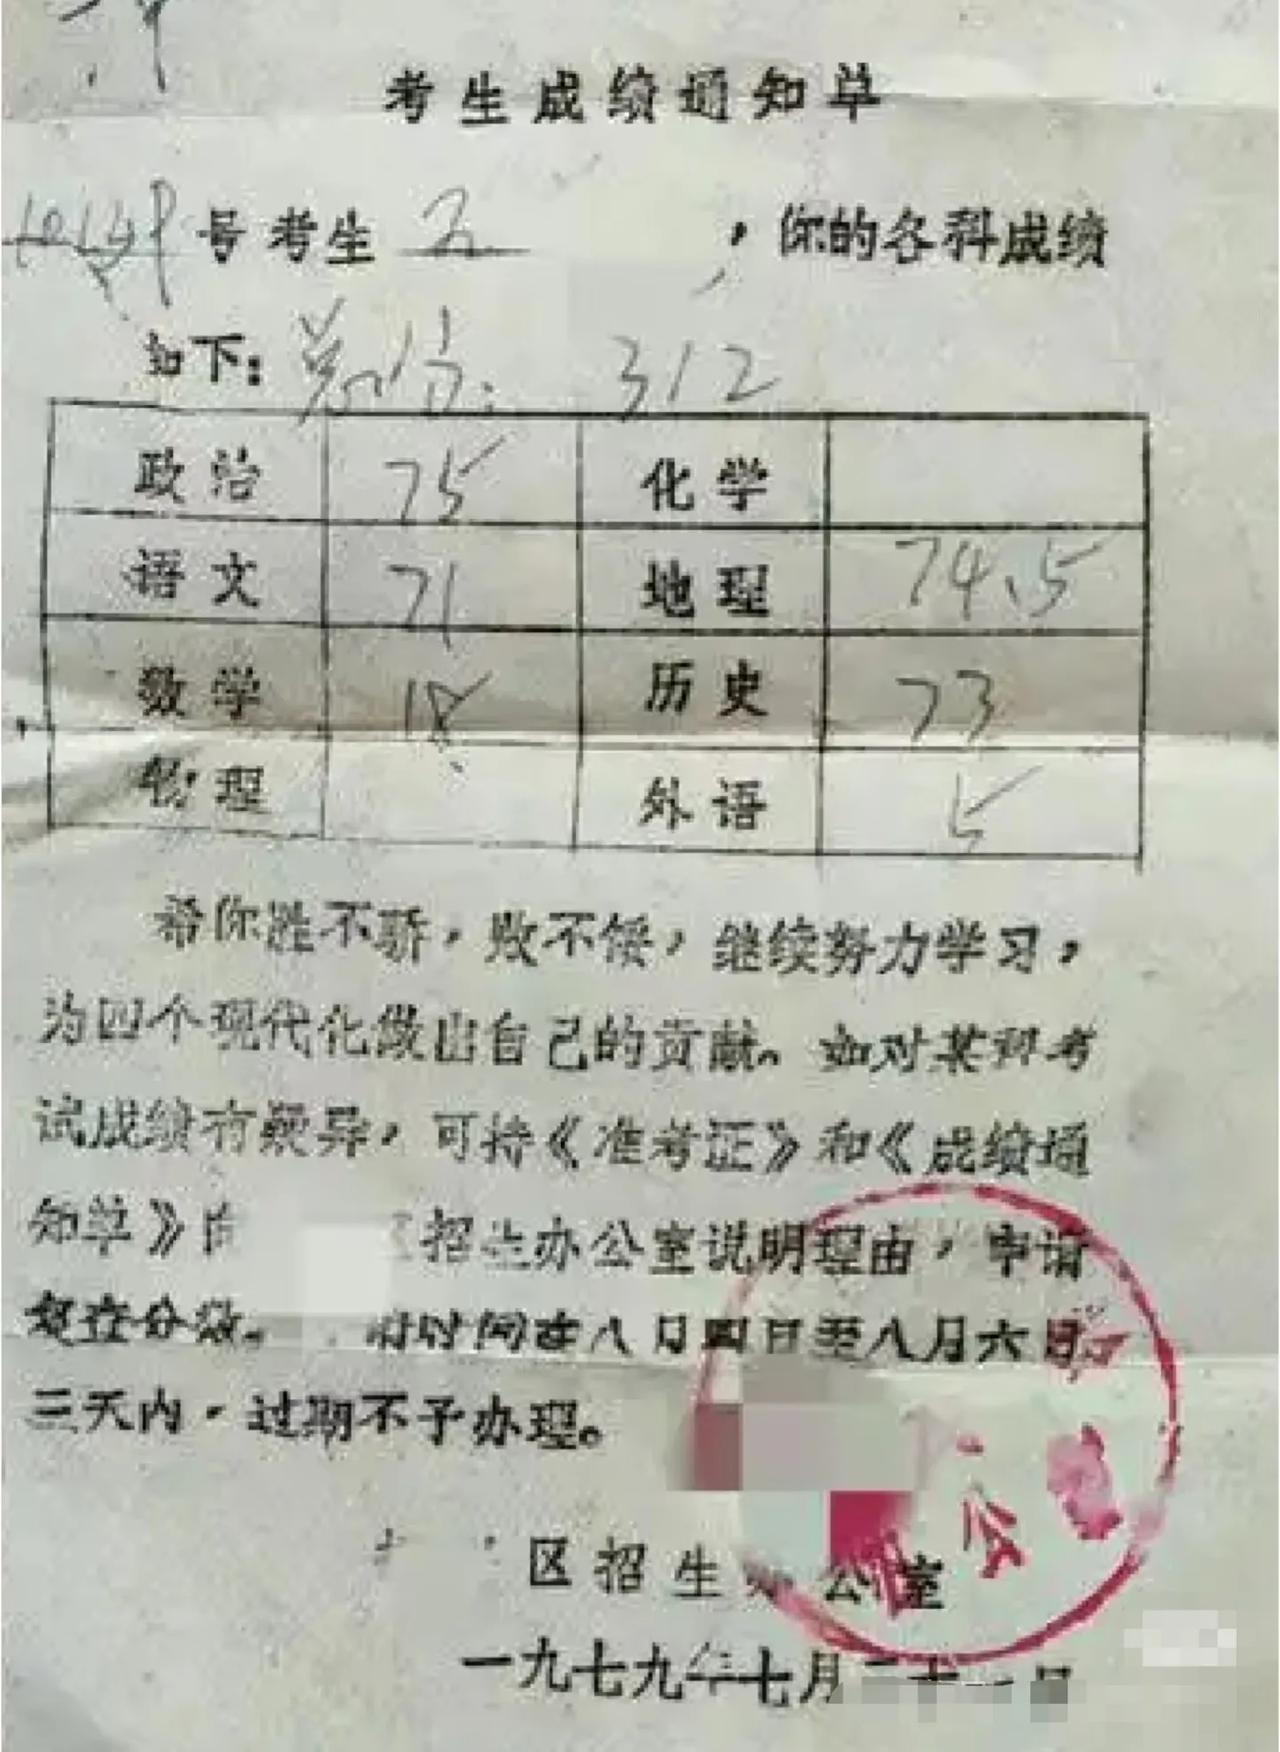 考生成绩通知单
号考生 王 ，你的各科成绩
如下: 总分: 312
政治 75 化学
语文 71 地理 74.5
数学 18 历史 73
物理 外语 5
希你胜不骄，败不馁，继续努力学习，
为四个现代化做出自己的贡献。如对某科考
试成绩有疑异，可持《准考证》和《成绩通
知单》向 区招生办公室说明理由，申请
复查分数。 时间在八月四日至八月六日
三天内，过期不予办理。
区招生办公室
一九七九年七月三十一日